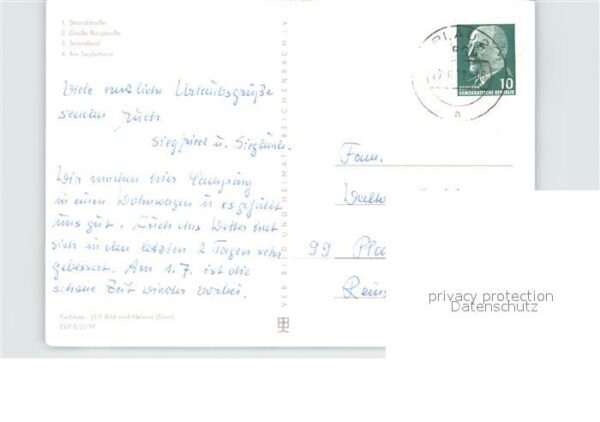 1. Strandstraße
2. Große Burgstraße
3. Strandbad
4. Am Seglerheim
Viele herzliche Urlaubsgrüße
senden Euch
Siegfried u. Sieglinde.
Wir machen hier Camping
in einem Wohnwagen u es gefällt
uns gut. Auch das Wetter hat
sich in den letzten 2 Tagen sehr
gebessert. Am 1.7. ist die
schöne Zeit wieder vorbei.
Farbfoto: VEB Bild und Heimat
EVP 0,20 M
VEB BILD UND HEIMAT REICHENBACH i. V.
PLAU
10
DEUTSCHE
DEMOKRATISCHE REPUBLIK
Fam.
Walte
99 Pla
Reins
privacy protection
Datenschutz